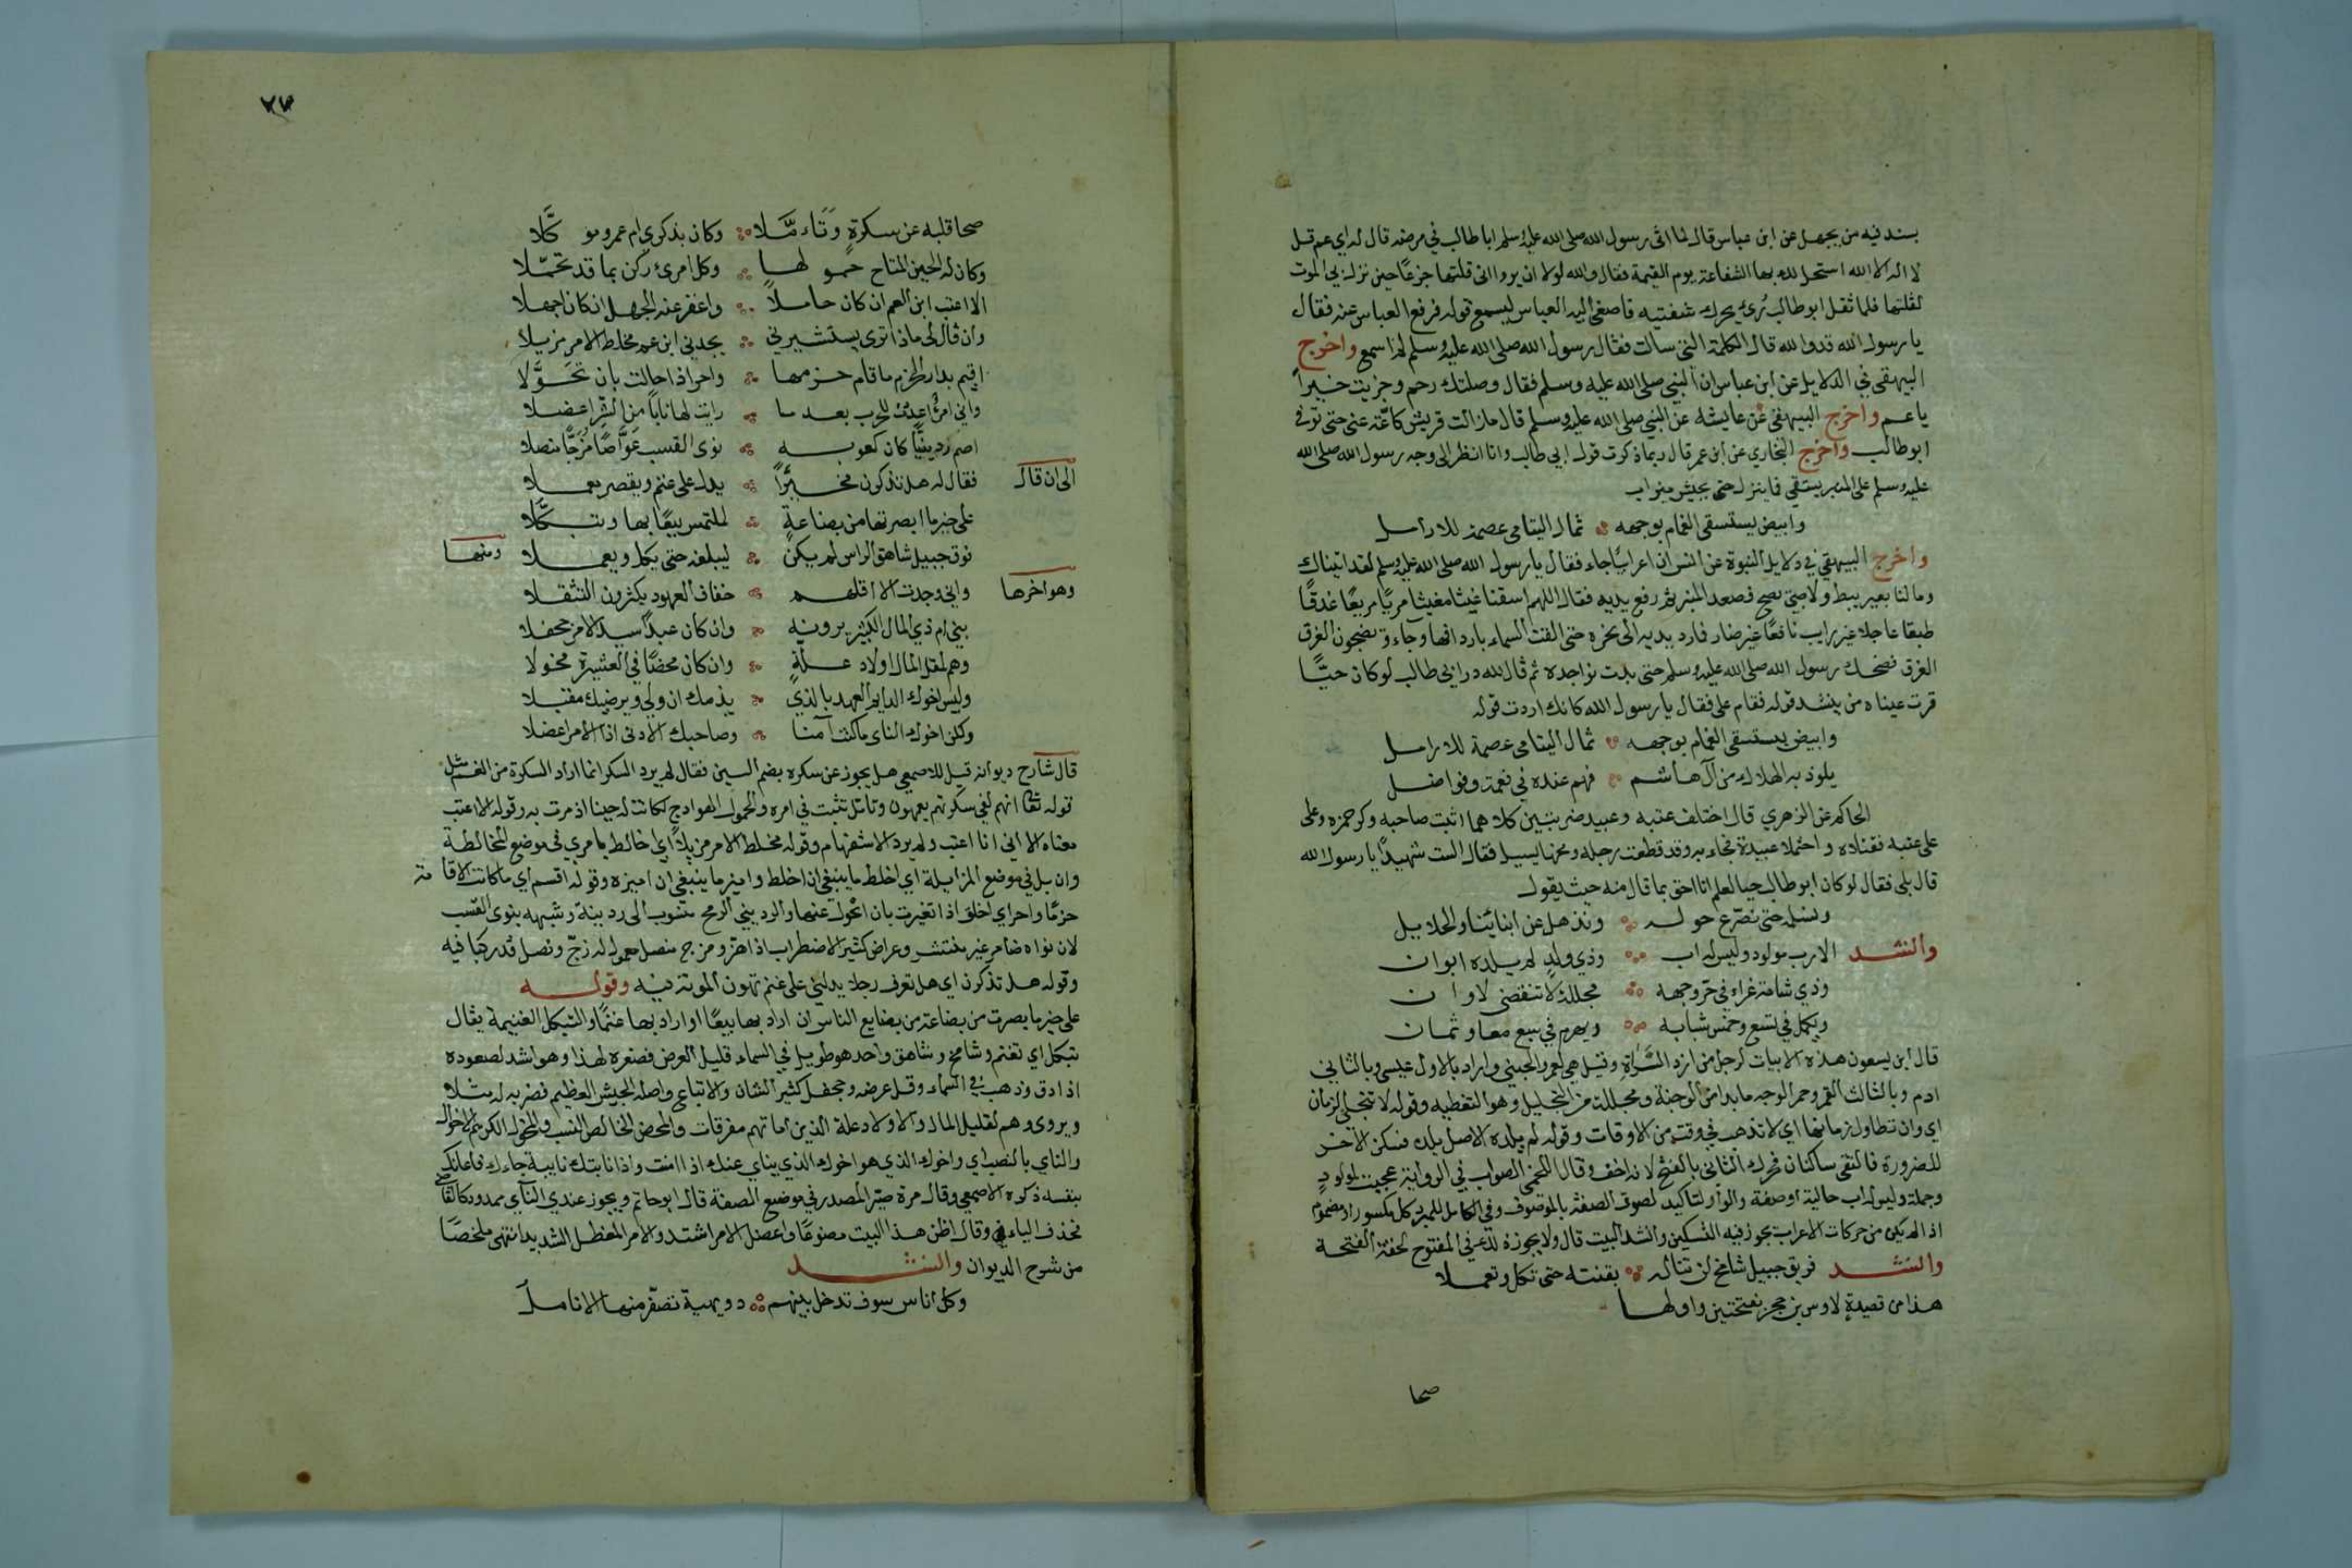 بسند فيه من يجهل عن ابن عباس قال لما اتى رسول الله صلى الله عليه وسلم ابا طالب في مرضه قال له اي عم قل
لا اله الا الله استحل لك بها الشفاعة يوم القيمة فقال والله لولا ان يروا انى قلتها جزعًا حين نزل بي الموت
لقلتها فلما ثقل ابو طالب رُئي يحرك شفتيه فاصغى اليه العباس ليسمع قوله فرفع العباس عنه فقال
يا رسول الله قد والله قال الكلمة التي سالت فقال رسول الله صلى الله عليه وسلم لم اسمع واخرج
البيهقي في الدلايل عن ابن عباس ان النبي صلى الله عليه وسلم فقال وصلتك رحم وجزيت خيرًا
يا عم واخرج البيهقي عن عايشه عن النبي صلى الله عليه وسلم قال ما زالت قريش كاعّة عنى حتى توفي
ابو طالب واخرج البخاري عن ابن عمر قال ربما ذكرت قول ابي طالب وانا انظر الى وجه رسول الله صلى الله
عليه وسلم على المنبر يستقي فما ينزل حتى يجيش ميزاب
وابيض يستسقى الغمام بوجهه ثمال اليتامى عصمة للارامل
واخرج البيهقي في دلايل النبوة عن انس ان اعرابيًا جاء فقال يا رسول الله صلى الله عليه وسلم لقد اتيناك
وما لنا بعير يبط ولا صبيّ يصيح فصعد المنبر ثم رفع يديه فقال اللهم اسقنا غيثا مغيثا مريًا مريعًا غدقًا
طبقا عاجلا غير رايب نافعًا غير ضار فما رد يديه الى نحره حتى القت السماء باردافها وجاءو يضجون الغرق
الغرق فضحك رسول الله صلى الله عليه وسلم حتى بدت نواجده ثم قال لله در ابي طالب لو كان حيًّا
قرت عيناه من ينشد قوله فقام على فقال يا رسول الله كانك اردت قوله
وابيض يستسقى الغمام بوجهه ثمال اليتامى عصمة للارامل
يلوذ به الهلاك من آل هاشم فهم عنده في نعمة وفواضل
الحاكم عن الزهري قال اختلف عتبه وعبيد ضربتين كلاهما اثبت صاحبه وكر حمزه وعلى
على عتبه فقتلاه واحتملا عبيدة فجاء به وقد قطعت رجله ومخها يسيل فقال الست شهيدًا يا رسول الله
قال بلى فقال لو كان ابو طالب حيا لعلم انا احق بما قال منه حيث يقول
ونسلمه حتى نصرّع حوله ونذهل عن ابنائنا والحلايل
وانشد الا رب مولود وليس له اب وذي ولدٍ لم يلده ابوان
وذي شامة غراء في حرّ وجهه مجللة لا تنقضى لاوان
ويكمل في تسع وخمس شبابه ويهرم في سبع معا وثمان
قال ابن يسعون هذه الابيات لرجل من ازد السَّراة وقيل هي لعمرو الجنبي واراد بالاول عيسى وبالثاني
ادم وبالثالث القمر وحر الوجه ما بدا من الوجنة ومجللة من التجليل وهو التغطيه وقوله لا تنجلي لزمان
اي وان تطاول زمانها اي لا تذهب في وقت من الاوقات وقوله لم يلده الاصل يلده فسكن الآخر
للضرورة فالتقى ساكنان فحرك الثاني بالفتح لانه اخف وقال اللخمي الصواب في الرواية عجبت لمولودٍ
وجملة وليس له اب حالية او صفة والواو لتاكيد لصوق الصفة بالموصوف وفي الكامل للمبرد كل مكسور او مضموم
اذا لم يكن من حركات الاعراب يجوز فيه التسكين وانشد البيت قال ولا يجوز ذلك في المفتوح لخفة الفتحة
وانشد فويق جبيل شامخ لن تناله بقنته حتى تكل وتعملا
هذا من قصيدة لاوس بن حجر بفتحتين واولها
صحا
٧٧
صحا قلبه عن سكرةٍ وَتَاءمَّلا وكان بذكرى ام عمرو مو كَّلا
وكان له الحين المتاح حمو لها وكل امرئ رهن بما قد تحمّلا
الا اعتب ابن العم ان كان حاملاً واغفر عنه الجهل ان كان اجهلا
وان قال لى ماذا ترى يستشيرني يجدني ابن عم مخلط الامر مزيلا
اقيم بدار الحزم ما قام حزمها واحر اذا حالت بان تحَوَّلا
واني امرؤ اعددت للحرب بعد ما رايت لها نابًا من الشر اعضلا
اصم ردينيًّا كان كعوبه نوى القسب عَوَّاصًا مُزَجًّا منصلا
الى ان قال فقال له هل تذكرن مخبّرًا يدل على غنم ويقصر معملا
على خير ما ابصرتها من بضاعةٍ لملتمس بيعًا بها وتبكّلا
فوق جبيل شاهق الراس لم يكن ليبلغه حتى يكل ويعملا ومنها
وهو اخرها واني وجدت الا اقلهم خفاف العهود يكثرون التنقلا
بني ام ذي المال الكثير يرونه وان كان عبدًا سيد الامر جحفلا
وهم لمقل المال اولاد علةٍ وان كان محضًا في العشيرة مخولا
وليس اخوك الدايم العهد بالذي يذمك ان ولى ويرضيك مقبلا
ولكن اخوك الناي ما كنت آمنا وصاحبك الادنى اذا الامر اعضلا
قال شارح ديوانه قيل للاصمعي هل يجوز عن سكره بضم السين فقال لم يرد السكر انما اراد السكرة من الغم مثل
قوله تعا انهم لفي سكرتهم يعمهون وتامّل تثبت في امره والحمول الهوادج لكانت له حينا اذ مرت به وقوله الا اعتب
معناه الا اني انا اعتب ولم يرد الاستفهام وقوله مخلط الامر مزيلاً اي خالط بامري في موضع المخالطة
وان بل في موضع المزايلة اي اخلط ما ينبغي ان اخلط واميز ما ينبغي ان اميزه وقوله اقسم اي ما كانت الاقامة
حزمًا واحر اي اخلق اذا تغيرت بان اتحول عنها والرديني الرمح منسوب الى ردينة وشبهه بنوى القسب
لان نواه ضامر غير منتشر وعراض كثير الاضطراب اذا هز ومزج منصل معمول له زجّ ونصل قد ركبا فيه
وقوله هل تذكرن اي هل تعرف رجلا يدلني على غنم تهون المونة فيه وقوله
على خير ما بصرت من بضاعة من بضايع الناس ان اراد بها بيعًا او اراد بها غنمًا والتبكل الغنيمة يقال
تبكل اي تغنم وشامخ وشاهق واحد هو طويل في السماء قليل العرض فصغره لهذا وهو اشد لصعوده
اذا دق وذهب في السماء وقل عرضه وجحفل كثير الشان والاتباع واصله الجيش العظيم فضربه له مثلا
ويروى وهم لقليل المال والاولاد علة الذين امهاتهم مفرقات والمحض الخالص النسب والمخول الكريم الاخوال
والناي بالنصب اي واخوك الذي هو اخوك الذي يناي عنك اذا امنت واذا نابتك نايبة جاءك فاعانك
بنفسه ذكره الاصمعي وقال مرة صيّر المصدر في موضع الصفة قال ابو حاتم ويجوز عندي النآي ممدود كالقاضي
فحذف الياء وقال اظن هذا البيت مصنوعًا واعضل الامر اشتد والامر المعضل الشديد انتهى ملخصًا
من شرح الديوان وانشد
وكل اناس سوف تدخل بينهم دويهية تصفرّ منها الانامل